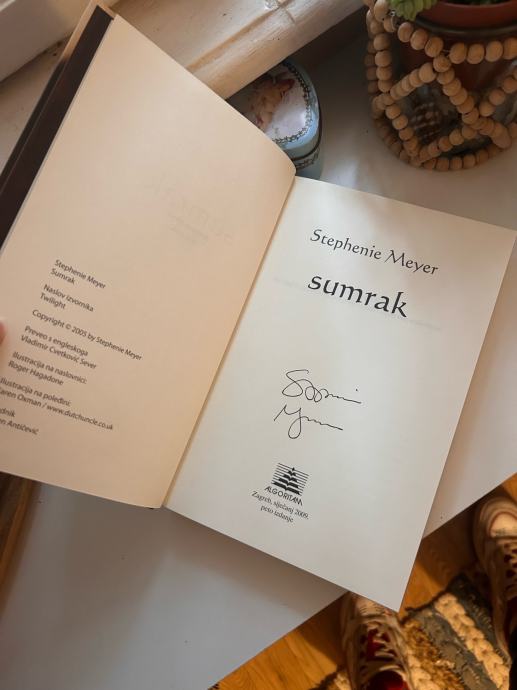 Stephenie Meyer
Sumrak
Naslov izvornika
Twilight
Copyright © 2005 by Stephenie Meyer
Preveo s engleskoga
Vladimir Cvetković Sever
Ilustracija na naslovnici:
Roger Hagadone
Ilustracija na poleđini:
aren Oxman / www.dutchuncle.co.uk
dnik
n Antičević
Stephenie Meyer
sumrak
ALGORITAM
Zagreb, siječanj 2009.
peto izdanje